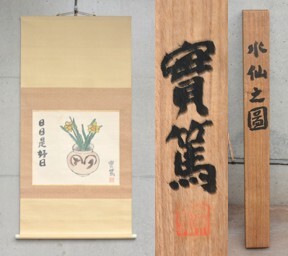 日日是好日
實篤
實篤
水仙之圖